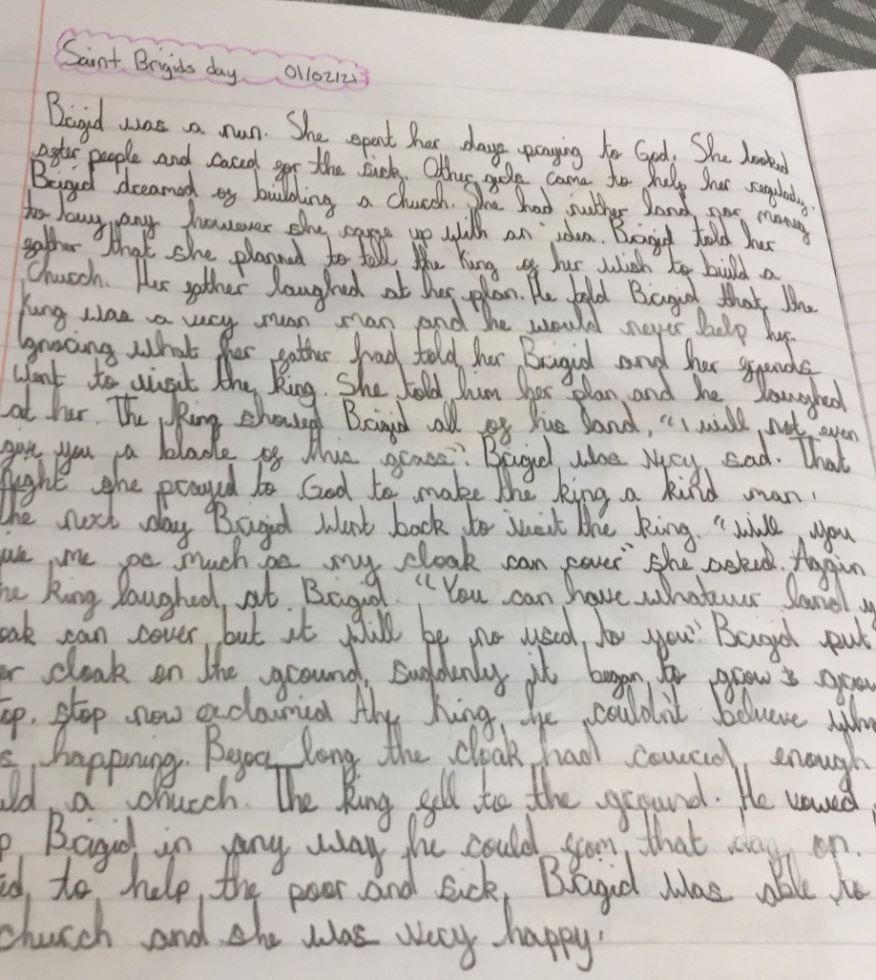 Saint Brigids day 01/02/23
Brigid was a nun. She spent her days praying to God. She looked
after people and cared for the sick. Other girls came to help her regularly.
Brigid dreamed of building a church. She had neither land nor money
to buy any however she came up with an idea. Brigid told her
father that she planned to tell the King of her wish to build a
Church. Her father laughed at her plan. He told Brigid that the
king was a very mean man and he would never help her.
Ignoring what her father had told her Brigid and her friends
went to visit the king. She told him her plan and he laughed
at her. The King showed Brigid all of his land, "I will not even
give you a blade of this grass". Brigid was very sad. That
night she prayed to God to make the king a kind man.
the next day Brigid went back to visit the king. "will you
me as much as my cloak can cover" she asked. Again
he king laughed at Brigid. "You can have whatever land y
oak can cover but it will be no used to you" Brigid put
er cloak on the ground, suddenly it began to grow & grow
op, stop now exclaimed the King, he couldn't believe wh
s happening. Before long the cloak had covered enough
ild a church. The King fell to the ground. He vowed
p Brigid in any way he could from that day on.
ed to help the poor and sick. Brigid was able to
church and she was very happy.